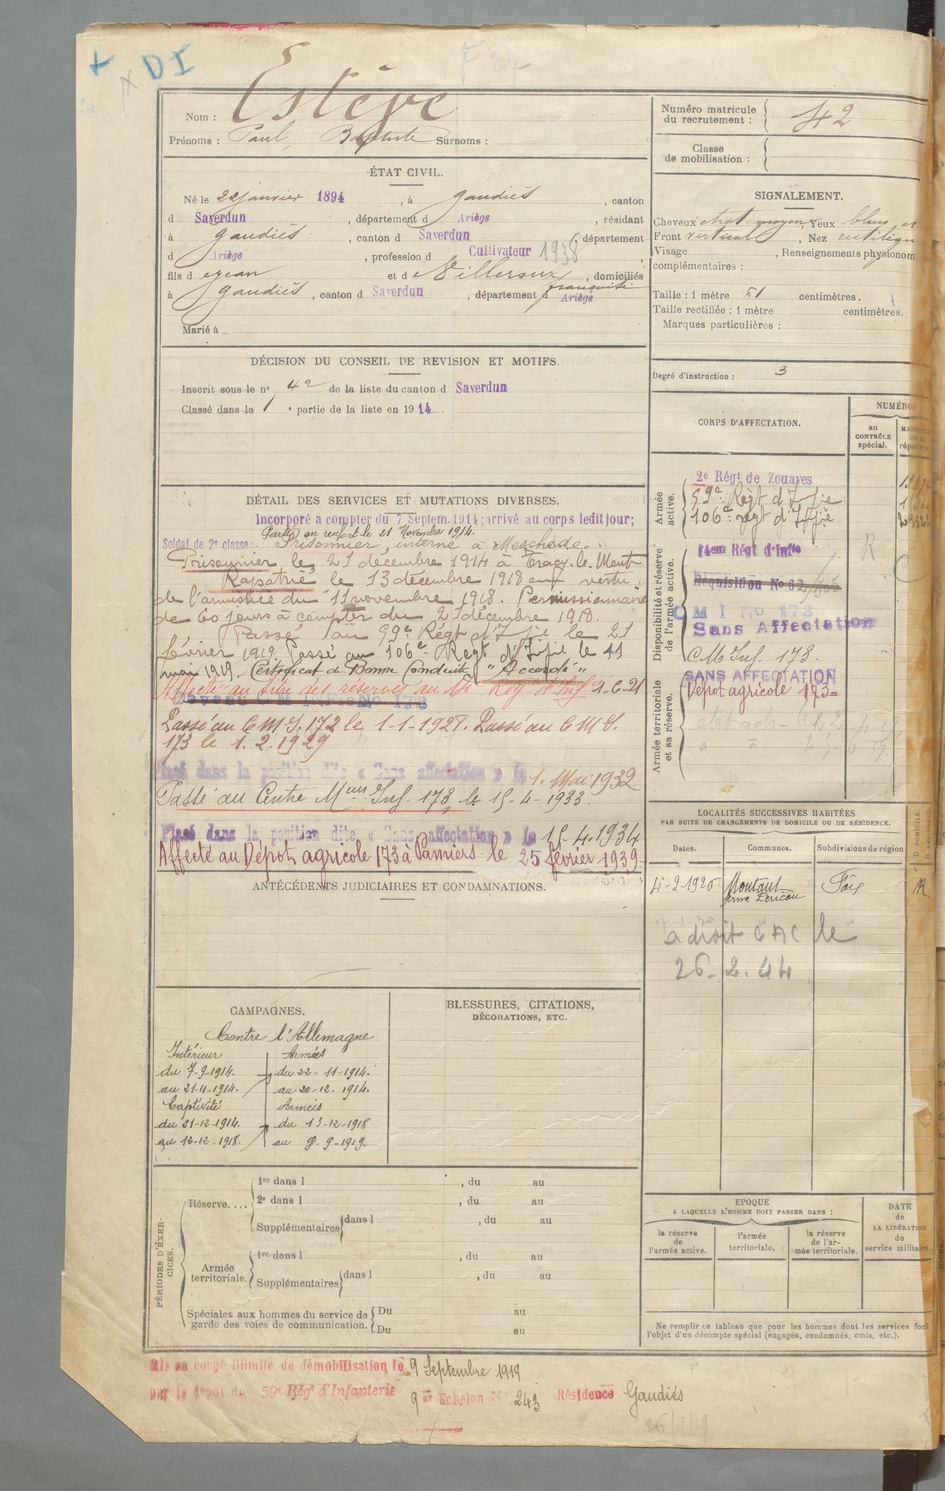 + DI
Nom : Estève
Prénoms : Paul, Baptiste Surnoms :
ÉTAT CIVIL.
Né le 22 janvier 1894, à Gaudiès, canton
d Saverdun, département d Ariège, résidant
à Gaudiès, canton d Saverdun, département
d Ariège, profession d Cultivateur 1938,
fils d et d , domiciliés
à Gaudiès, canton d Saverdun, département d Ariège
Marié à
DÉCISION DU CONSEIL DE REVISION ET MOTIFS.
Inscrit sous le n° 42 de la liste du canton d Saverdun
Classé dans la 1 e partie de la liste en 1914.
DÉTAIL DES SERVICES ET MUTATIONS DIVERSES.
Incorporé a compter du 7 Septem. 1914; arrivé au corps ledit jour;
Parti en renfort le 21 Novembre 1914.
Soldat de 2e classe. Prisonnier, interné à Meschede.
Prisonnier le 21 décembre 1914 à Tracy-le-Mont
Rapatrié le 13 décembre 1918 en vertu
de l'armistice du 11 novembre 1918. Permissionnaire
de 60 jours à compter du 21 décembre 1918.
Passé au 59e Régt d'Infie le 21
février 1919. Passé au 106e Régt d'Infie le 11
mai 1919. Certificat de Bonne Conduite "Accordé"
Affecté au titre des réserves au 14e Rég d'Inf 1-6-21
Passé au C M I. 172 le 1-1-1928. Passé au C M I.
173 le 1.2.1929
Placé dans la position dite « Sans affectation » le 1. Mai 1932
Passé au Centre Meur Inf. 173, le 15-4-1933.
Placé dans la position dite, « Sans affectation » le 15.4.1934
Affecté au Dépot agricole 173 à Pamiers le 25 février 1939
ANTÉCÉDENTS JUDICIAIRES ET CONDAMNATIONS.
CAMPAGNES.
Contre l'Allemagne
Intérieur Armées
du 7-9-1914. du 22-11-1914.
au 21-11-1914. au 20-12-1914.
Captivité Armées
du 21-12-1914. du 13-12-1918
au 12-12-1918. au 9-9-1919.
BLESSURES, CITATIONS,
DÉCORATIONS, ETC.
PÉRIODES D'EXER-
CICES.
Réserve....
1re dans l , du au
2e dans l , du au
Supplémentaires dans l , du au
Armée
territoriale.
1re dans l , du au
Supplémentaires dans l , du au
Spéciales aux hommes du service de
garde des voies de communication.
Du au
Du au
Mis en congé illimité de démobilisation le 9 Septembre 1919
par le dépôt du 59e Rég d'Infanterie 9e Echelon N° 243 Résidence Gaudiès
Numéro matricule
du recrutement : 42
Classe
de mobilisation :
SIGNALEMENT.
Cheveux chat. moyen, Yeux bleus
Front vertical, Nez rectiligne
Visage , Renseignements physionom
complémentaires :
Taille : 1 mètre 51 centimètres.
Taille rectifiée : 1 mètre centimètres.
Marques particulières :
Degré d'instruction : 3
CORPS D'AFFECTATION.
NUMÉRO
au
CONTRÔLE
spécial.
Armée
active.
2e Régt de Zouaves
59e Régt d'Infie
106e régt d'Infie
Disponibilité et réserve
de l'armée active.
14em Régt d'Infie
R
Réquisition No 62
C M I No 173
Sans Affectation
C.M. Inf. 173.
Armée territoriale
et sa réserve.
SANS AFFECTATION
Dépot agricole 173
LOCALITÉS SUCCESSIVES HABITÉES
PAR SUITE DE CHANGEMENTS DE DOMICILE OU DE RÉSIDENCE.
Dates. Communes. Subdivisions de région
D. DOMICILE.
4-2-1926 Montaut Foix R
a droit CAC le
26-2.44
EPOQUE
A LAQUELLE L'HOMME DOIT PASSER DANS :
la réserve
de
l'armée active.
l'armée
territoriale.
la réserve
de l'ar-
mée territoriale.
DATE
de
LA LIBÉRATION
du
service militaire.
Ne remplir ce tableau que pour les hommes dont les services font
l'objet d'un décompte spécial (engagés, condamnés, omis, etc.).